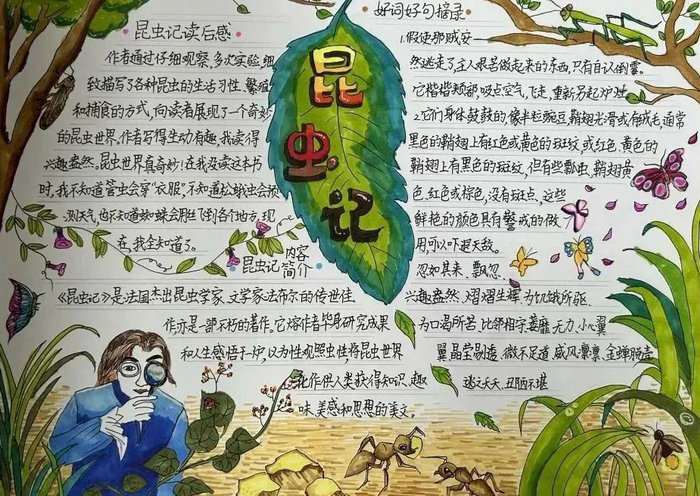 昆虫记
昆虫记读后感
作者通过仔细观察,多次实验,细
致描写了各种昆虫的生活习性、繁殖
和捕食的方式,向读者展现了一个奇妙
的昆虫世界,作者写得生动有趣,我读得
兴趣盎然。昆虫世界真奇妙!在我没读这本书
时,我不知道管虫会穿“衣服”,不知道松蛾虫会预
测天气,也不知道蜘蛛会用丝飞到各个地方,现
在,我全知道了。
昆虫记内容
简介
《昆虫记》是法国杰出昆虫学家、文学家法布尔的传世佳
作,亦是一部不朽的著作,它熔作者毕身研究成果
和人生感悟于一炉,以为性观照虫性,将昆虫世界
化作供人类获得知识、趣
味、美感和思想的美文。
好词好句摘录
1.假使那贼安
然逃走了,主人艰苦做起来的东西,只有自认倒霉。
它揩揩颊部,吸点空气,飞走,重新另起炉灶
2.它们身体鼓鼓的,像半粒豌豆,鞘翅光滑或有绒毛,通常
黑色的鞘翅上有红色或黄色的斑纹,或红色、黄色的
鞘翅上有黑色的斑纹,但有些瓢虫,鞘翅黄
色、红色或棕色,没有斑点,这些
鲜艳的颜色具有警戒的做
用,可以吓退天敌。
忽如其来、飘忽
兴趣盎然、熠熠生辉、为饥饿所驱
为口渴所苦、比邻相守、萎靡无力、小心翼
翼、晶莹剔透、微不足道、威风凛凛、金蝉脱壳、
逃之夭夭、丑陋不堪